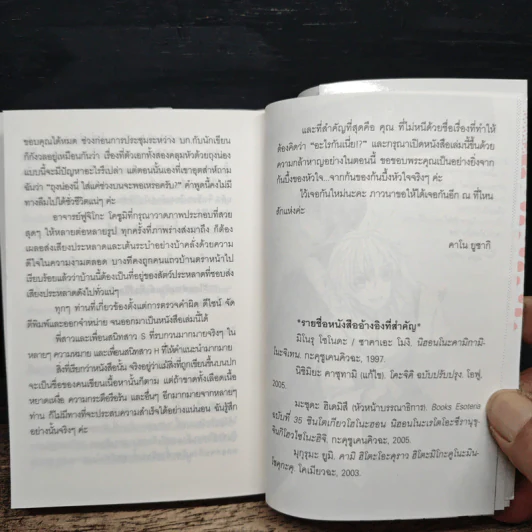 ขอบคุณได้หมด ช่วงก่อนการประชุมระหว่าง บก.กับนักเขียน
ก็กังวลอยู่เหมือนกันว่า เรื่องที่ตัวเอกทั้งสองคลุมหัวด้วยถุงน่อง
แบบนี้จะมีปัญหาอะไรรึเปล่า แต่ตอนนั้นเองที่เขาอุตส่าห์ถาม
ฉันว่า "ถุงน่องนี่ ใส่แค่ช่วงบนจะพอเหรอครับ?" คำพูดนี้คงไม่มี
ทางลืมไปได้ชั่วชีวิตแน่ๆ ค่ะ
อาจารย์ฟูจิโกะ โคซูมิที่กรุณาวาดภาพประกอบที่สวย
สุดๆ ให้หลายต่อหลายรูป ทุกครั้งที่ภาพร่างส่งมาถึง ก็ต้อง
เผลอส่งเสียงประหลาดและเต้นระบำอย่างบ้าคลั่งด้วยความ
ดีใจในความงามตลอด บางทีคงถูกคนแถวบ้านตราหน้าไป
เรียบร้อยแล้วว่าบ้านนี้ต้องเป็นที่อยู่ของสัตว์ประหลาดที่ชอบส่ง
เสียงประหลาดดังไปทั่วแน่ๆ
ทุกๆ ท่านที่เกี่ยวข้องตั้งแต่การตรวจคำผิด ดีไซน์ จัด
ตีพิมพ์และออกจำหน่าย จนออกมาเป็นหนังสือเล่มนี้ได้
พี่สาวและเพื่อนสนิทสาว S ที่รบกวนมากมายจริงๆ ใน
หลายๆ ความหมาย และเพื่อนสนิทสาว H ที่ให้คำแนะนำมากมาย
สิ่งที่เรียกว่าหนังสือนั้น จริงอยู่ว่าแม้สิ่งที่ถูกเขียนขึ้นบนปก
จะเป็นชื่อของคนเขียนเนื้อหานั้นก็ตาม แต่ถ้าขาดทั้งเลือดเนื้อ
หยาดเหงื่อ ความกระตือรือร้น และอื่นๆ อีกมากมายจากหลายๆ
ท่าน ก็ไม่มีทางที่จะประสบความสำเร็จได้อย่างแน่นอน ฉันรู้สึก
อย่างนั้นจริงๆ ค่ะ
และที่สำคัญที่สุดคือ คุณ ที่ไม่หนีด้วยชื่อเรื่องที่ทำให้
ต้องคิดว่า "อะไรกันเนี่ย!?" และกรุณาเปิดหนังสือเล่มนี้ขึ้นด้วย
ความกล้าหาญอย่างในตอนนี้ ขอขอบพระคุณเป็นอย่างยิ่งจาก
ก้นบึ้งของหัวใจ...จากก้นของก้นบึ้งหัวใจจริงๆ ค่ะ
ไว้เจอกันใหม่นะคะ ภาวนาขอให้ได้เจอกันอีก ณ ที่ไหน
สักแห่งค่ะ
คาโน ยูซากิ
*รายชื่อหนังสืออ้างอิงที่สำคัญ*
มิโนรุ โซโนดะ / ซาคาเอะ โมงิ. นิฮอนโนะคามิกามิ-
โนะจิเทน. กะคุชูเคนคิวฉะ, 1997.
นิชิมิยะ คาซุทามิ (แก้ไข). โคะจิคิ ฉบับปรับปรุง. โอฟู,
2005.
มะซุดะ ฮิเดมิสึ (หัวหน้าบรรณาธิการ) Books Esoterica
ฉบับที่ 35
กะคุชูเคนคิวฉะ, 2005.
โคเมียวฉะ, 2003.